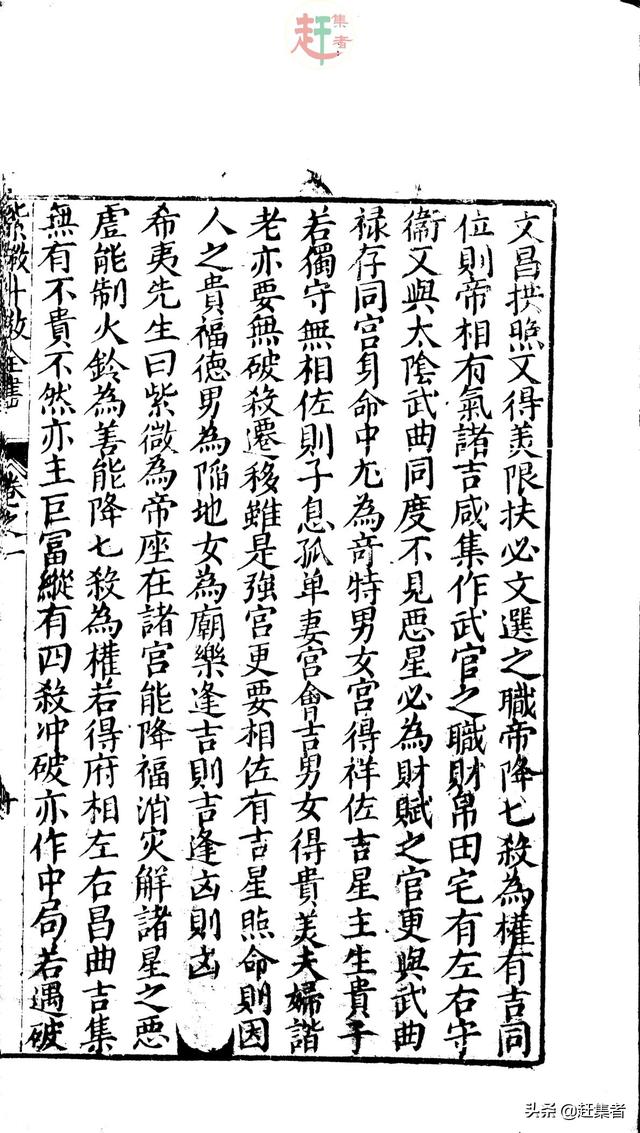 赶集者
文昌拱照又得美限扶必文選之職帝降七殺為權有吉同
位則帝相有氣諸吉咸集作武官之職財帛田宅有左右守
衛又與太陰武曲同度不見惡星必為財賦之官更與武曲
祿存同宮身命中尤為奇特男女宮得祥佐吉星主生貴子
若獨守無相佐則子息孤单妻宮會吉男女得貴美夫婦諧
老亦要無破殺遷移雖是強宮更要相佐有吉星照命則因
人之貴福德男為陷地女為廟樂逢吉則吉逢凶則凶
希夷先生曰紫微為帝座在諸宮能降福消灾解諸星之惡
虛能制火鈴為善能降七殺為權若得府相左右昌曲吉集
無有不貴不然亦主巨冨縱有四殺冲破亦作中局若遇破
卷之一
头条 @赶集者